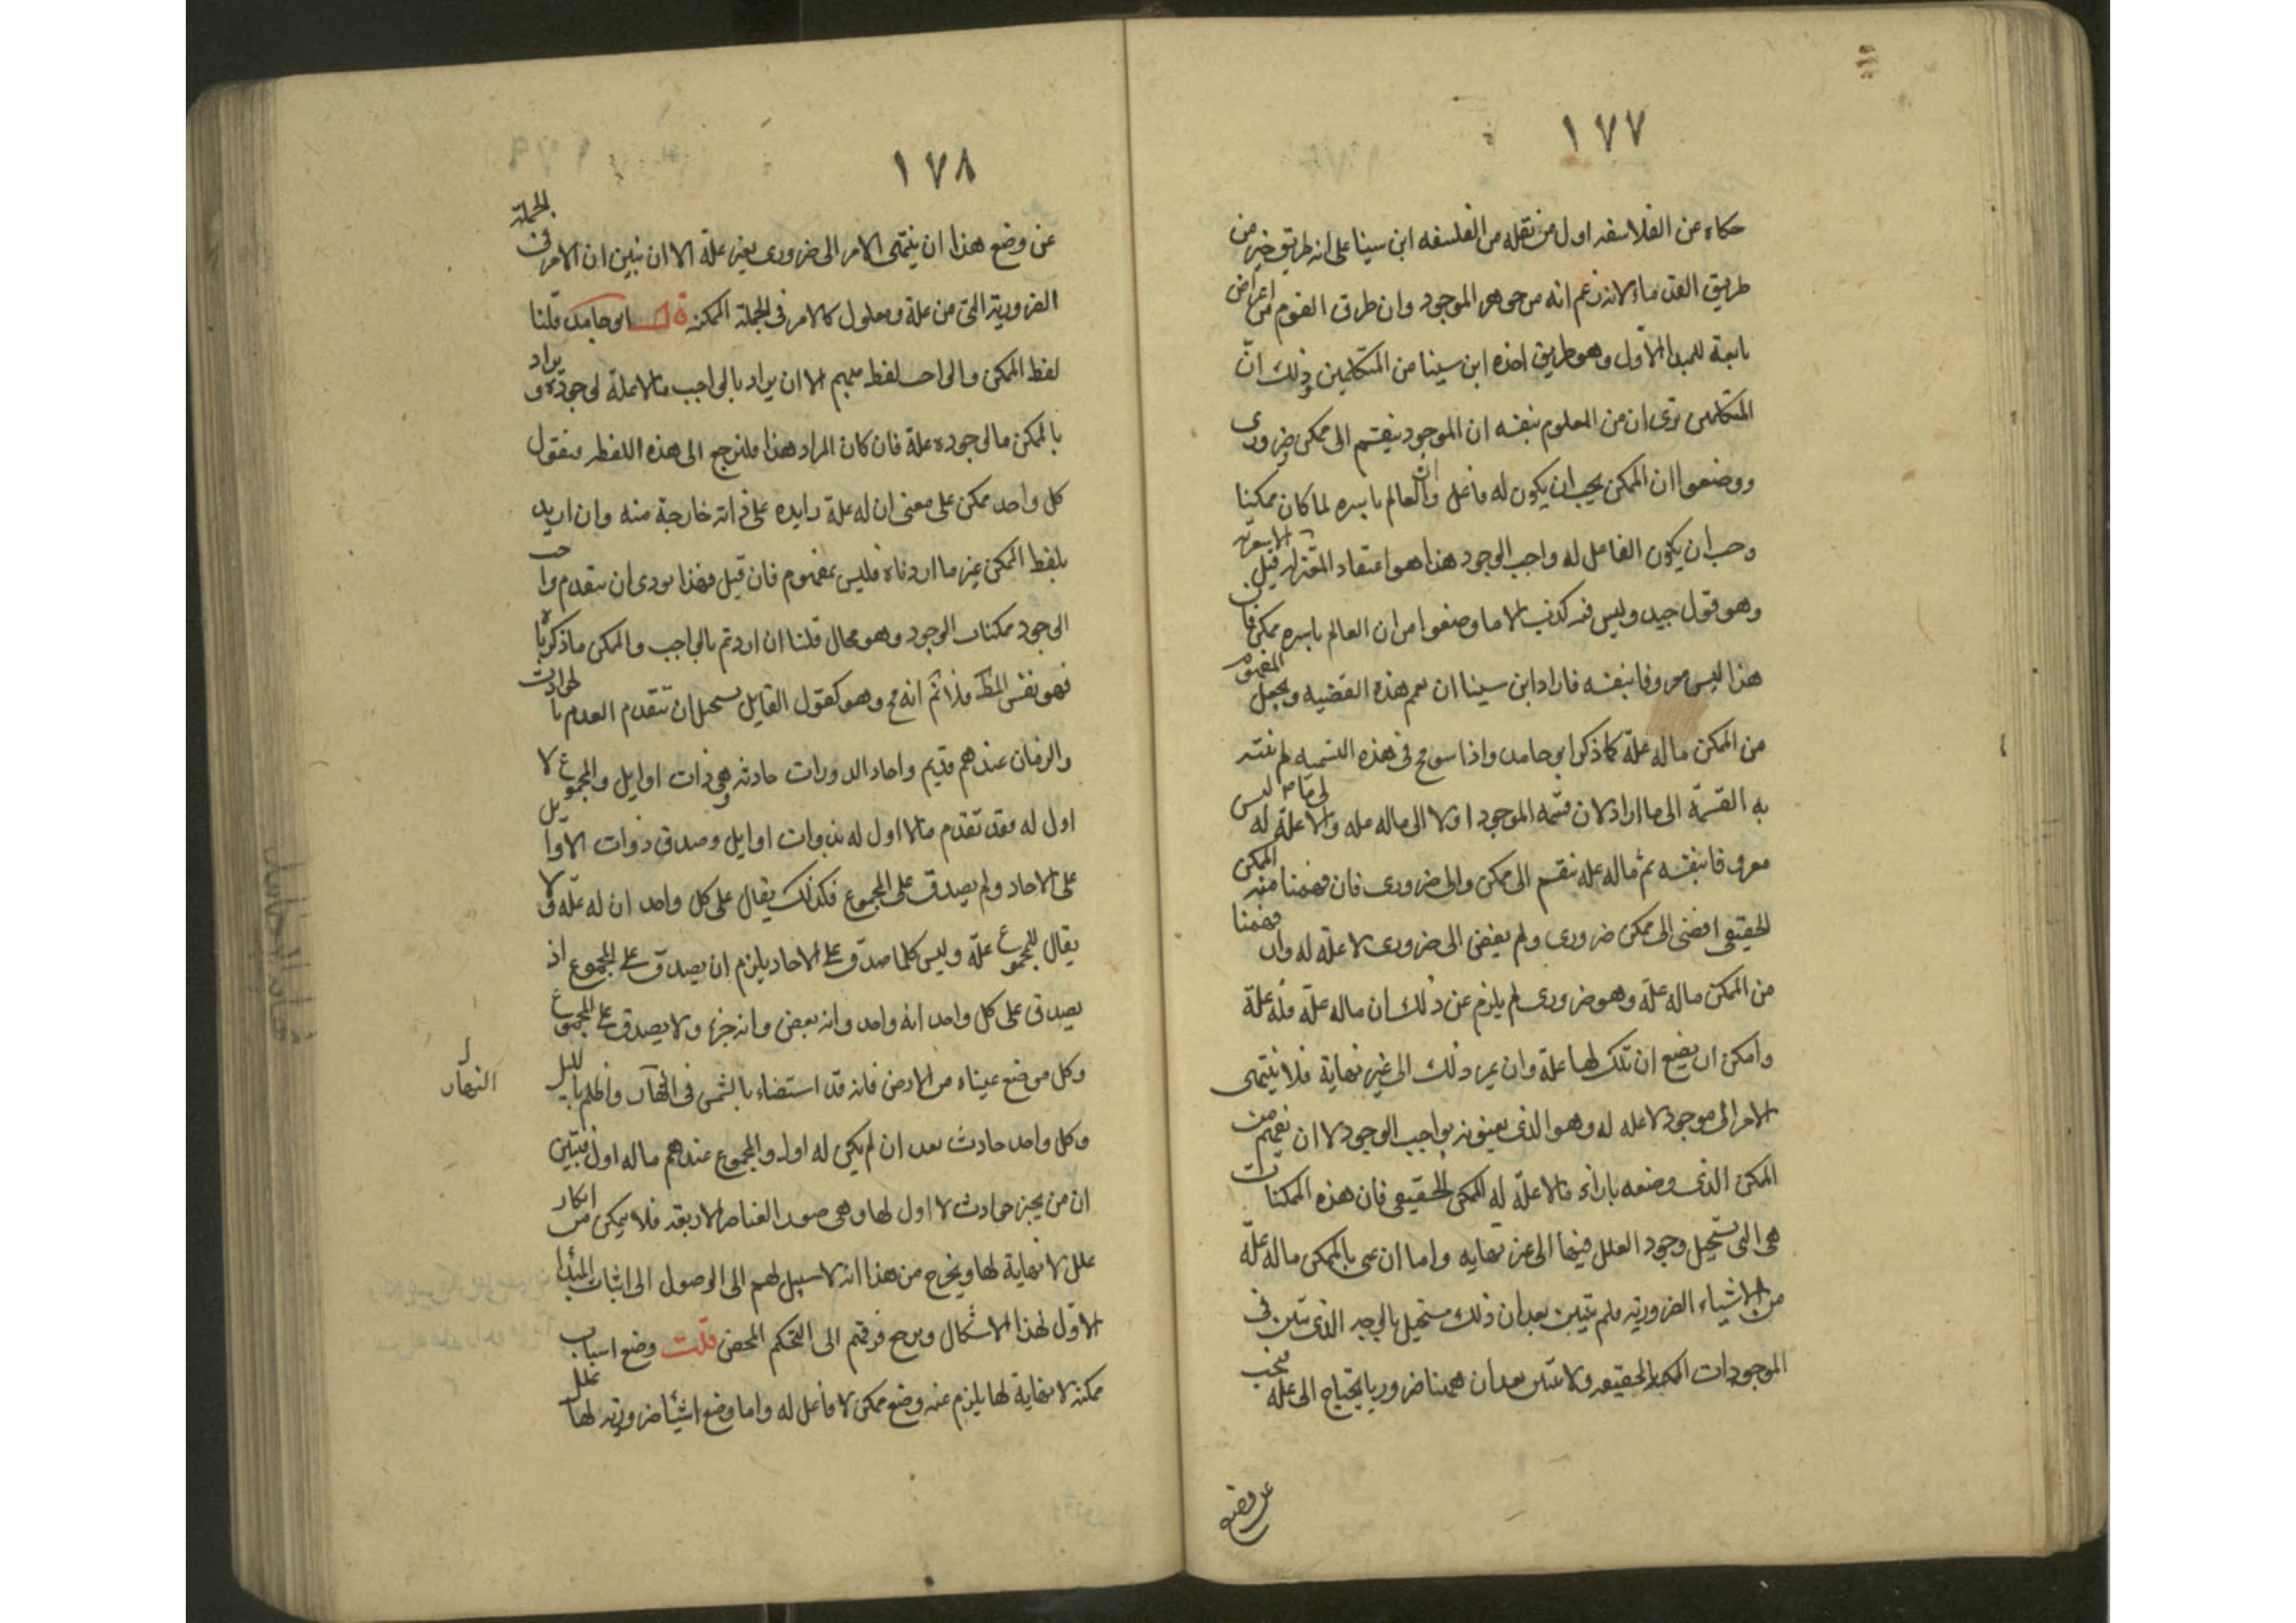 ١٧٧
حكاه عن الفلاسفه اول من نقله من الفلسفه ابن سينا على انه طريق خير من
طريق القدماء لانه زعم انه من جوهر الموجود وان طرق القوم من اعراض
تابعة للمبدا الاول وهو طريق اخذه ابن سينا من المتكلمين وذلك انّ
المتكلمين ترى ان من المعلوم بنفسه ان الموجود ينقسم الى ممكن وضروري
ووضعوا ان الممكن يجب ان يكون له فاعل وان العالم باسره لما كان ممكنا
وجب ان يكون الفاعل له واجب الوجود هذا هو اعتقاد المعتزله قبل الاشعريه
وهو قول جيد وليس فيه كذب الا ما وضعوا من ان العالم باسره ممكن فان
هذا ليس معروفا بنفسه فاراد ابن سينا ان يعم هذه القضيه ويجعل المفهوم
من الممكن ماله علّة كما ذكر ابو حامد واذا سومح في هذه التسميه لم تنته
به القسمة الى ما اراد لان قسمه الموجود اولا الى ماله عله والى ما لا علة له ليس
معروفا بنفسه ثم ماله عله ينقسم الى ممكن والى ضروري فان فهمنا منه الممكن
الحقيقي افضى الى ممكن ضروري ولم يفض الى ضروري لا علّة له وان فهمنا
من الممكن ماله علّة وهو ضروري لم يلزم عن ذلك ان ماله علّة فله علة
وامكن ان يضع ان تلك لها علة وان يمر ذلك الى غير نهاية فلا ينتهى
الامر الى موجود لا عله له وهو الذي يعنونه بواجب الوجود لا ان يفهم من
الممكن الذي وضعه بازاء مالا علّة له الممكن الحقيقي فان هذه الممكنات
هي التي يستحيل وجود العلل فيها الى غير نهايه واما ان عني بالممكن ماله علّة
من الاشياء الضروريه فلم يتبين بعد ان ذلك مستحيل بالوجه الذي تبين في
الموجودات الممكنه الحقيقيه ولا يتبين بعد ان ههنا ضروريا يحتاج الى علة فيجب
عن وضع
١٧٨
عن وضع هذا ان ينتهى الامر الى ضروري بغير علّة الا ان نبين ان الامر في الجملة
الضرورية التي من علة ومعلول كالامر في الجملة الممكنه قال ابو حامد قلنا
لفظ الممكن والواجب لفظ مبهم الا ان يراد بالواجب مالا علة لوجوده ويراد
بالممكن ما لوجوده علة فان كان المراد هذا فلنرجع الى هذه اللفظه فنقول
كل واحد ممكن على معنى ان له علة زايده على ذاته خارجة منه وان اريد
بلفظ الممكن غير ما اردناه فليس بمفهوم فان قيل فهذا يودى ان يتقدم واجب
الوجود بممكنات الوجود وهو محال قلنا ان اردتم بالواجب والممكن ما ذكرناه
فهو نفس المط فلا نم انه مح وهو كقول القايل يستحيل ان يتقدم العدم بالحوادث
والزمان عندهم قديم واحاد الدورات حادثه وهي ذات اوايل والمجموع لا
اول له فقد تقدم مالا اول له بذوات اوايل وصدق ذوات الاوايل
على الاحاد ولم يصدق على المجموع فكذلك يقال على كل واحد ان له علّة ولا
يقال للمجموع علّة وليس كلما صدق على الاحاد يلزم ان يصدق على المجموع اذ
يصدق على كل واحد انه واحد وانه بعض وانه جزء ولا يصدق على المجموع
وكل موضع عيناه من الارض فانه قد استضاء بالشمس في النهار واظلم بالليل
النهار
وكل واحد حادث بعد ان لم يكن له اول والمجموع عندهم ماله اول فتبين
ان من يجيز حوادث لا اول لها وهي صور العناصر الاربعه فلا يمكن من انكار
علل لا نهاية لها ويخرج من هذا انه لا سبيل لهم الى الوصول الى اثبات المبدا
الاول لهذا الاشكال ويرجع فرقهم الى التحكم المحض قلت وضع اسباب
ممكنه لا نهاية لها يلزم عنه وضع ممكن لا فاعل له واما وضع اشيا ضروريه لها علل